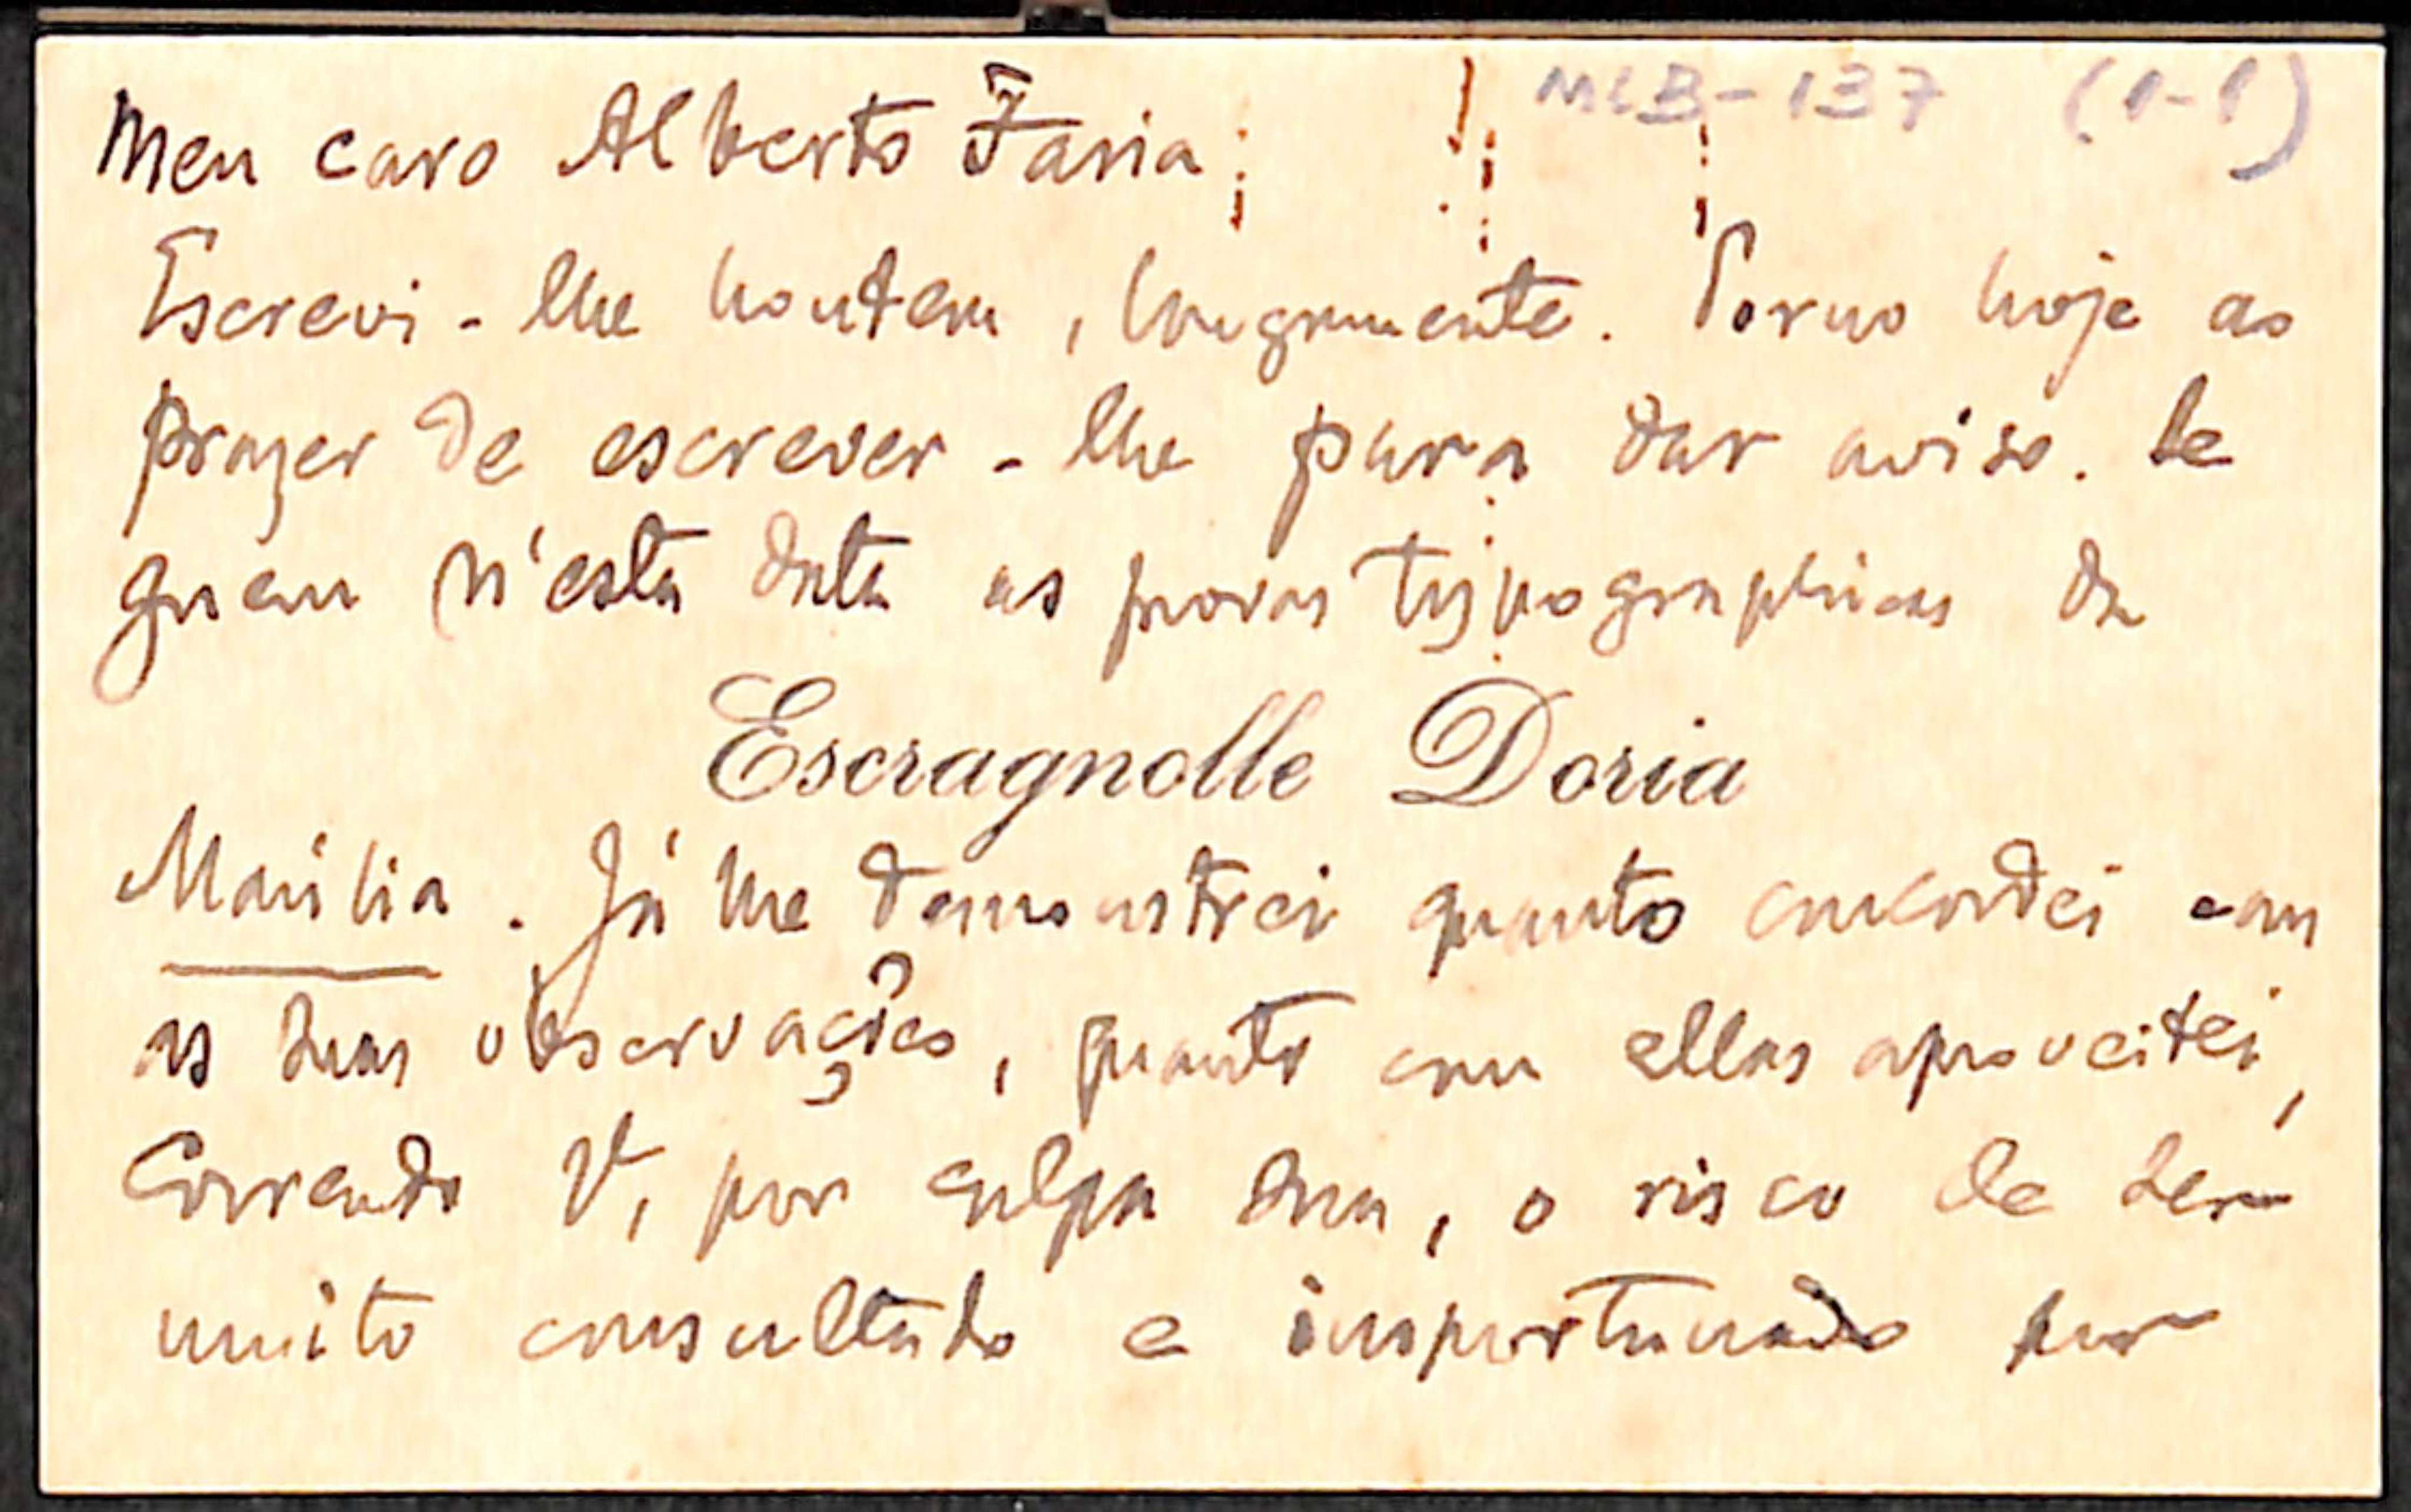 MLB-137 (1-1)
Meu caro Alberto Faria,
Escrevi-lhe hontem, longamente. Torno hoje ao
prazer de escrever-lhe para dar aviso. Se
guem n'esta data as provas typographicas da
Escragnolle Doria
Marilia. Já lhe demonstrei quanto concordei com
as suas observações, quanto com ellas aproveitei,
correndo V, por culpa sua, o risco de ser
muito consultado e importunado por